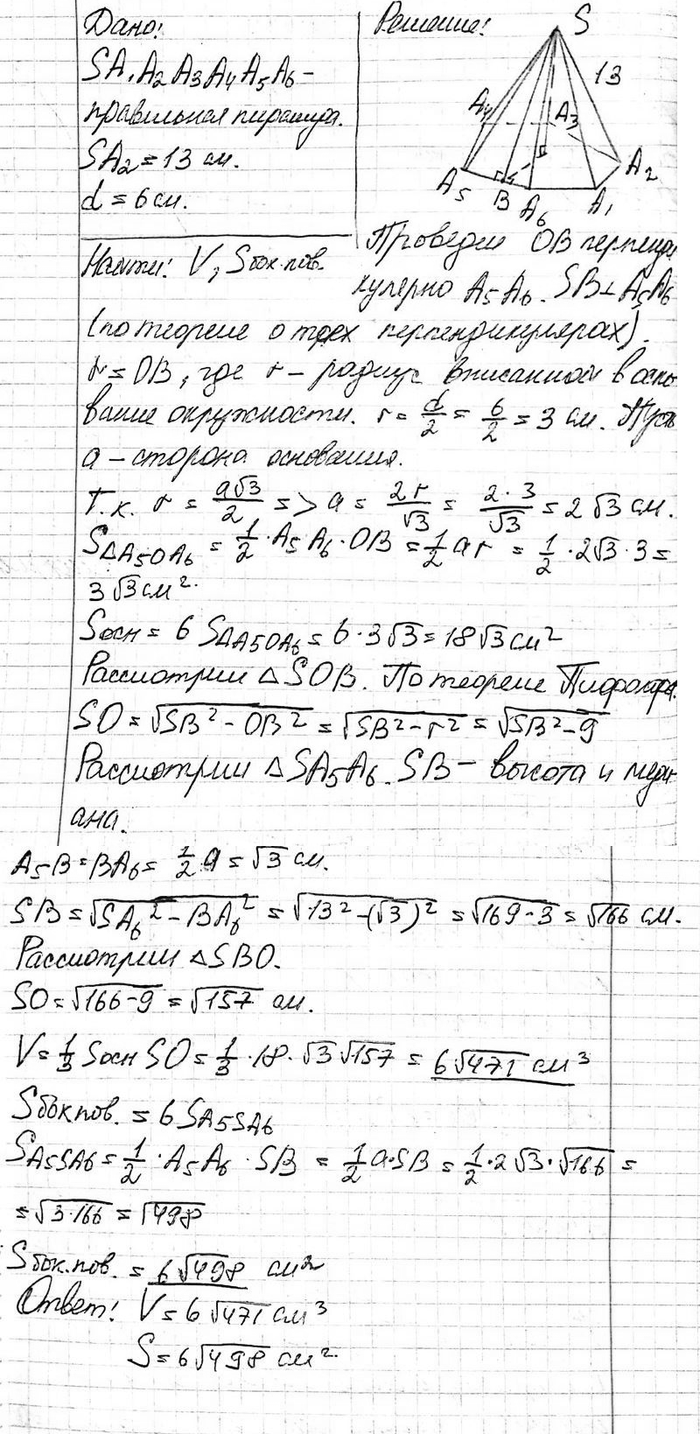 Дано:
SA₁A₂A₃A₄A₅A₆ –
правильная пирамида.
SA₂ = 13 см.
d = 6 см.
Найти: V, Sбок.пов.
Решение:
S
13
A₄
A₃
A₂
A₅
B
A₆
A₁
Проведем OB перпенди
кулярно A₅A₆. SB⊥A₅A₆
(по теореме о трех перпендикулярах).
r = OB, где r – радиус вписанной в осно
вание окружности. r = d/2 = 6/2 = 3 см. Пусть
a – сторона основания.
Т.к. r = a√3/2 => a = 2r/√3 = 2·3/√3 = 2√3 см.
S△A₅OA₆ = 1/2 · A₅A₆ · OB = 1/2 ar = 1/2 · 2√3 · 3 =
3√3 см².
Sосн = 6 S△A₅OA₆ = 6·3√3 = 18√3 см²
Рассмотрим △SOB. По теореме Пифагора
SO = √(SB² – OB²) = √(SB² – r²) = √(SB² – 9)
Рассмотрим △SA₅A₆. SB – высота и меди
ана.
A₅B = BA₆ = 1/2 a = √3 см.
SB = √(SA₆² – BA₆²) = √(13² – (√3)²) = √(169 – 3) = √166 см.
Рассмотрим △SBO.
SO = √(166 – 9) = √157 см.
V = 1/3 Sосн SO = 1/3 · 18 · √3 √157 = 6√471 см³
Sбок пов. = 6 SA₅SA₆
SA₅SA₆ = 1/2 · A₅A₆ · SB = 1/2 a·SB = 1/2 · 2√3 · √166 =
= √(3·166) = √498
Sбок.пов. = 6√498 см²
Ответ: V = 6√471 см³
S = 6√498 см².